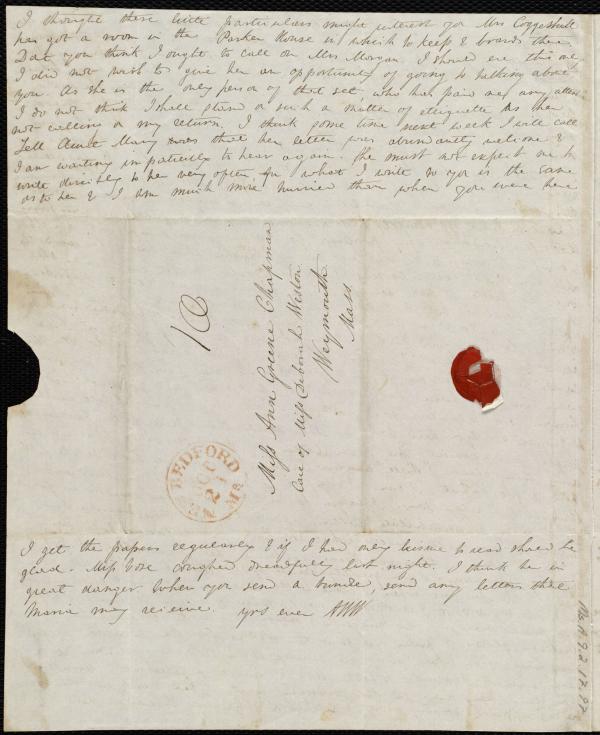 I thought these little particulars might interest you Mrs Coggeshall
has got a room in the Parker House in which to keep & boards there
Dost you think I ought to call on Mrs Morgan. I should ere this
I did not wish to give her an opportunity of going to talking about
you. As she is the only person of that set who has paid me any
I do not think I shall stand on such a matter of etiquette as her
not calling on my return, I think some time next week I will call
Tell Aunt Mary that her letter was abundantly welcome &
I am waiting impatiently to hear again. She must not expect me to
write directly to her very often, for what I write to you is the same
as to her & I am much more hurried than when you were here
10
Miss Ann Greene Chapman
Care of Miss Deborah Weston
Weymouth
Mass
BEDFORD
OCT
21
Ms
I get the papers regularly & if I had only time to read should be
glad. Miss Rose coughed dreadfully last night. I think her in
great danger. When you send a bundle, send any letters that
Maria may receive. yrs ever AWW
Ms.A.9.2.17.97